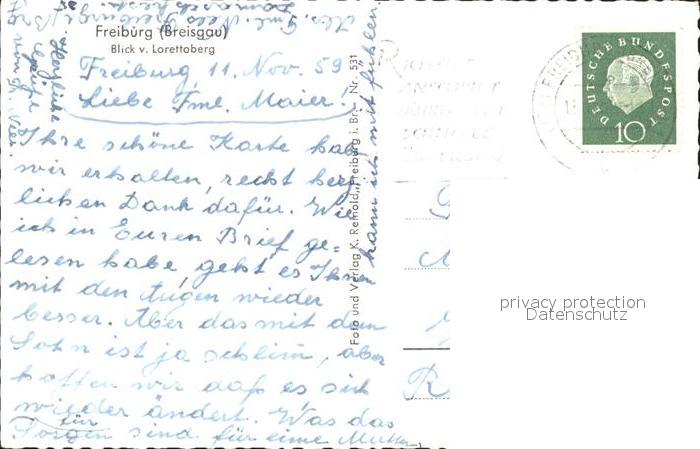 Freiburg (Breisgau)
Blick v. Lorettoberg
Freiburg, 11. Nov. 59
Liebe Fml. Maier!
Ihre schöne Karte hab
wir erhalten, recht herz-
lichen Dank dafür. Wie
ich in Euren Brief ge-
lesen habe, geht es Ihnen
mit den Augen wieder
besser. Aber das mit dem
Sohn ist ja schlim, aber
hoffen wir daß es sich
wieder ändert. Was das
für
Sorgen sind für eine Mutter,
kann ich mit fühlen
Herzliche
Grüße
von
Foto und Verlag K. Remold, Freiburg i. Br. Nr. 531
DEUTSCHE BUNDESPOST
10
privacy protection
Datenschutz